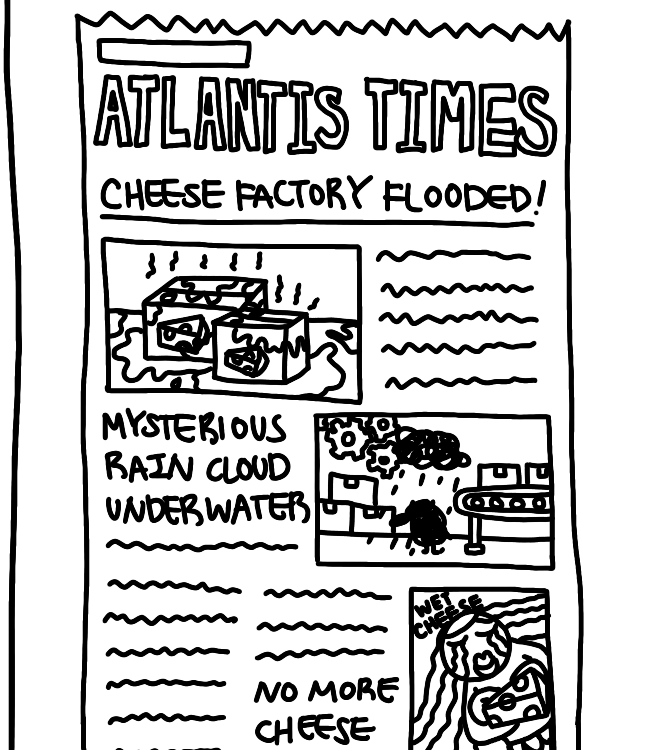 ATLANTIS TIMES
CHEESE FACTORY FLOODED!
MYSTERIOUS
RAIN CLOUD
UNDERWATER
WET
CHEESE
NO MORE
CHEESE